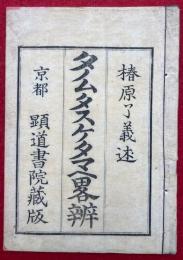 椿原了義述
タノムタスケタマヘ畧辨
京都 顕道書院蔵版